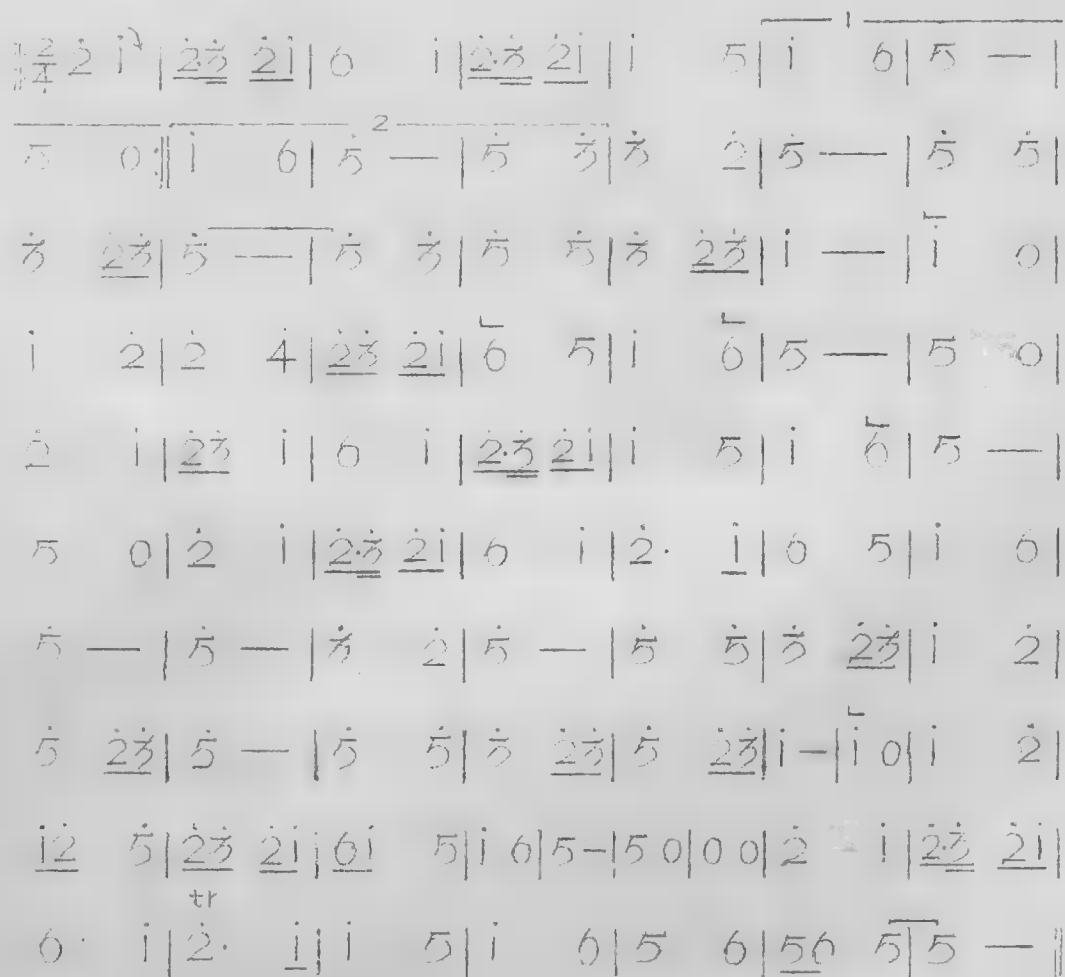 1
2/4 2̇ i̇ | 2̇·3̇ 2̇i̇ | 6 i̇ | 2̇·3̇ 2̇i̇ | i̇ 5 | i̇ 6 | 5 — |
2
5 0 :‖ i̇ 6 | 5̇ — | 5̇ 3̇ | 3̇ 2̇ | 5̇ — | 5̇ 5̇ |
3̇ 2̇3̇ | 5̇ — | 5̇ 3̇ | 5̇ 5̇ | 3̇ 2̇3̇ | i̇ — | i̇ 0 |
i̇ 2̇ | 2̇ 4̇ | 2̇3̇ 2̇i̇ | 6 5 | i̇ 6 | 5 — | 5 0 |
2̇ i̇ | 2̇3̇ i̇ | 6 i̇ | 2̇·3̇ 2̇i̇ | i̇ 5 | i̇ 6 | 5 — |
5 0 | 2̇ i̇ | 2̇·3̇ 2̇i̇ | 6 i̇ | 2̇· i̇ | 6 5 | i̇ 6 |
5̇ — | 5̇ — | 3̇ 2̇ | 5̇ — | 5̇ 5̇ | 3̇ 2̇3̇ | i̇ 2̇ |
5̇ 2̇3̇ | 5̇ — | 5̇ 5̇ | 3̇ 2̇3̇ | 5̇ 2̇3̇ | i̇ — | i̇ 0 | i̇ 2̇ |
i̇2̇ 5̇ | 2̇3̇ 2̇i̇ | 6i̇ 5 | i̇ 6 | 5 — | 5 0 | 0 0 | 2̇ i̇ | 2̇·3̇ 2̇i̇ |
tr
6· i̇ | 2̇· i̇ | i̇ 5 | i̇ 6 | 5 6 | 56 5 | 5 — ‖